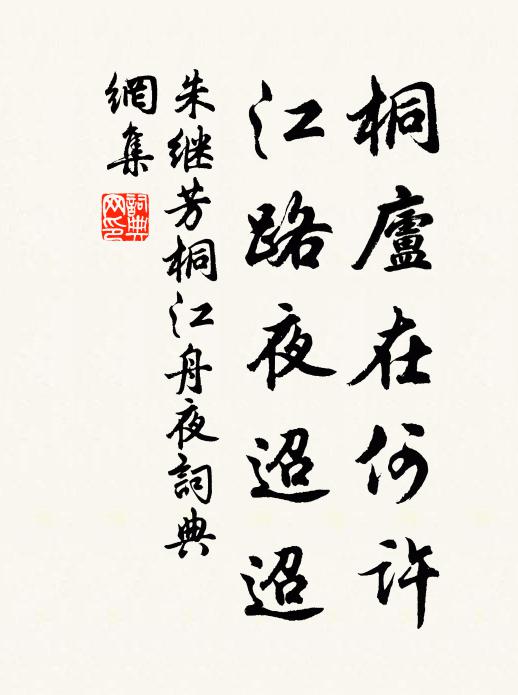 桐廬在何許
江路夜迢迢
朱继芳桐江舟夜詞典
網集
詞典网印